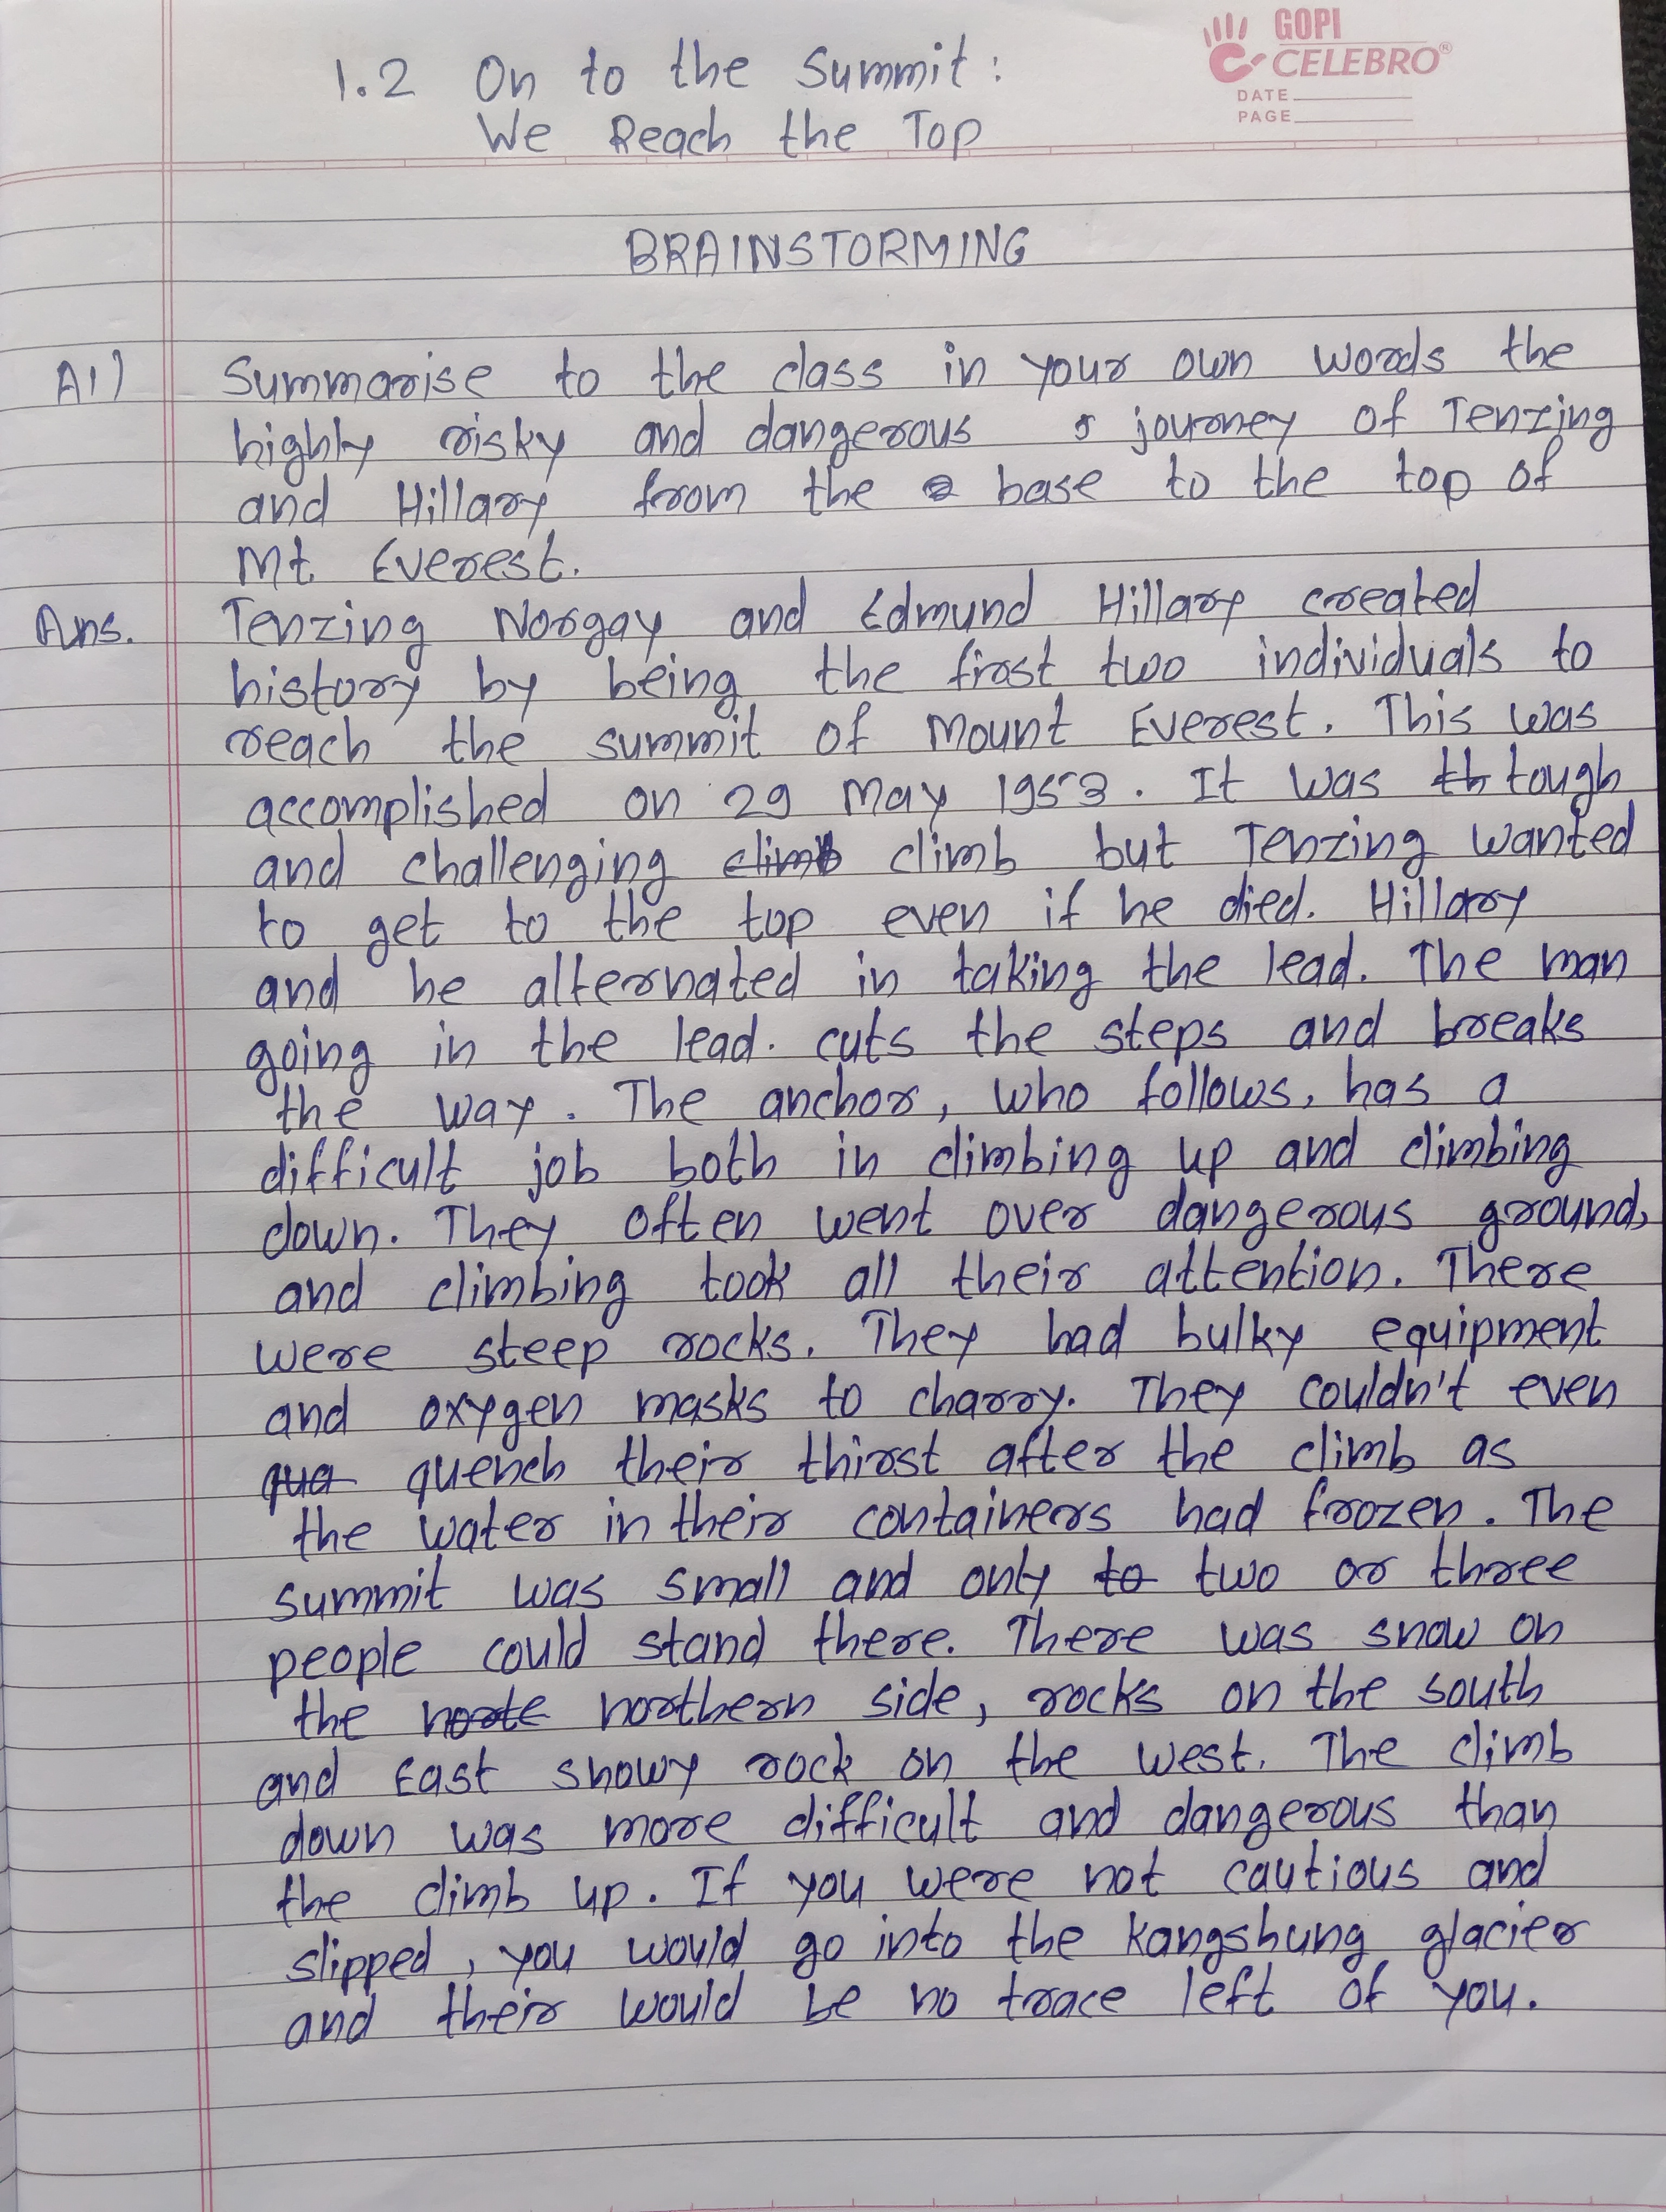 GOPI
CELEBRO®
DATE
PAGE
1.2 On to the Summit:
We Reach the Top
BRAINSTORMING
A1) Summarise to the class in your own words the
highly risky and dangerous journey of Tenzing
and Hillary from the base to the top of
Mt. Everest.
Ans. Tenzing Norgay and Edmund Hillary created
history by being the first two individuals to
reach the summit of Mount Everest. This was
accomplished on 29 May 1953. It was th tough
and challenging climb climb but Tenzing wanted
to get to the top even if he died. Hillary
and he alternated in taking the lead. The man
going in the lead. cuts the steps and breaks
the way. The anchor, who follows, has a
difficult job both in climbing up and climbing
down. They often went over dangerous ground,
and climbing took all their attention. There
were steep rocks. They had bulky equipment
and oxygen masks to charry. They couldn't even
qua quench their thirst after the climb as
the water in their containers had frozen. The
summit was small and only to two or three
people could stand there. There was snow on
the norte northern side, rocks on the south
and East snowy rock on the west. The climb
down was more difficult and dangerous than
the climb up. If you were not cautious and
slipped, you would go into the Kangshung glacier
and their would be no trace left of you.